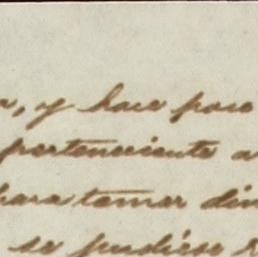 , y hace poco
perteneciente a
para tomar din
se pudiese